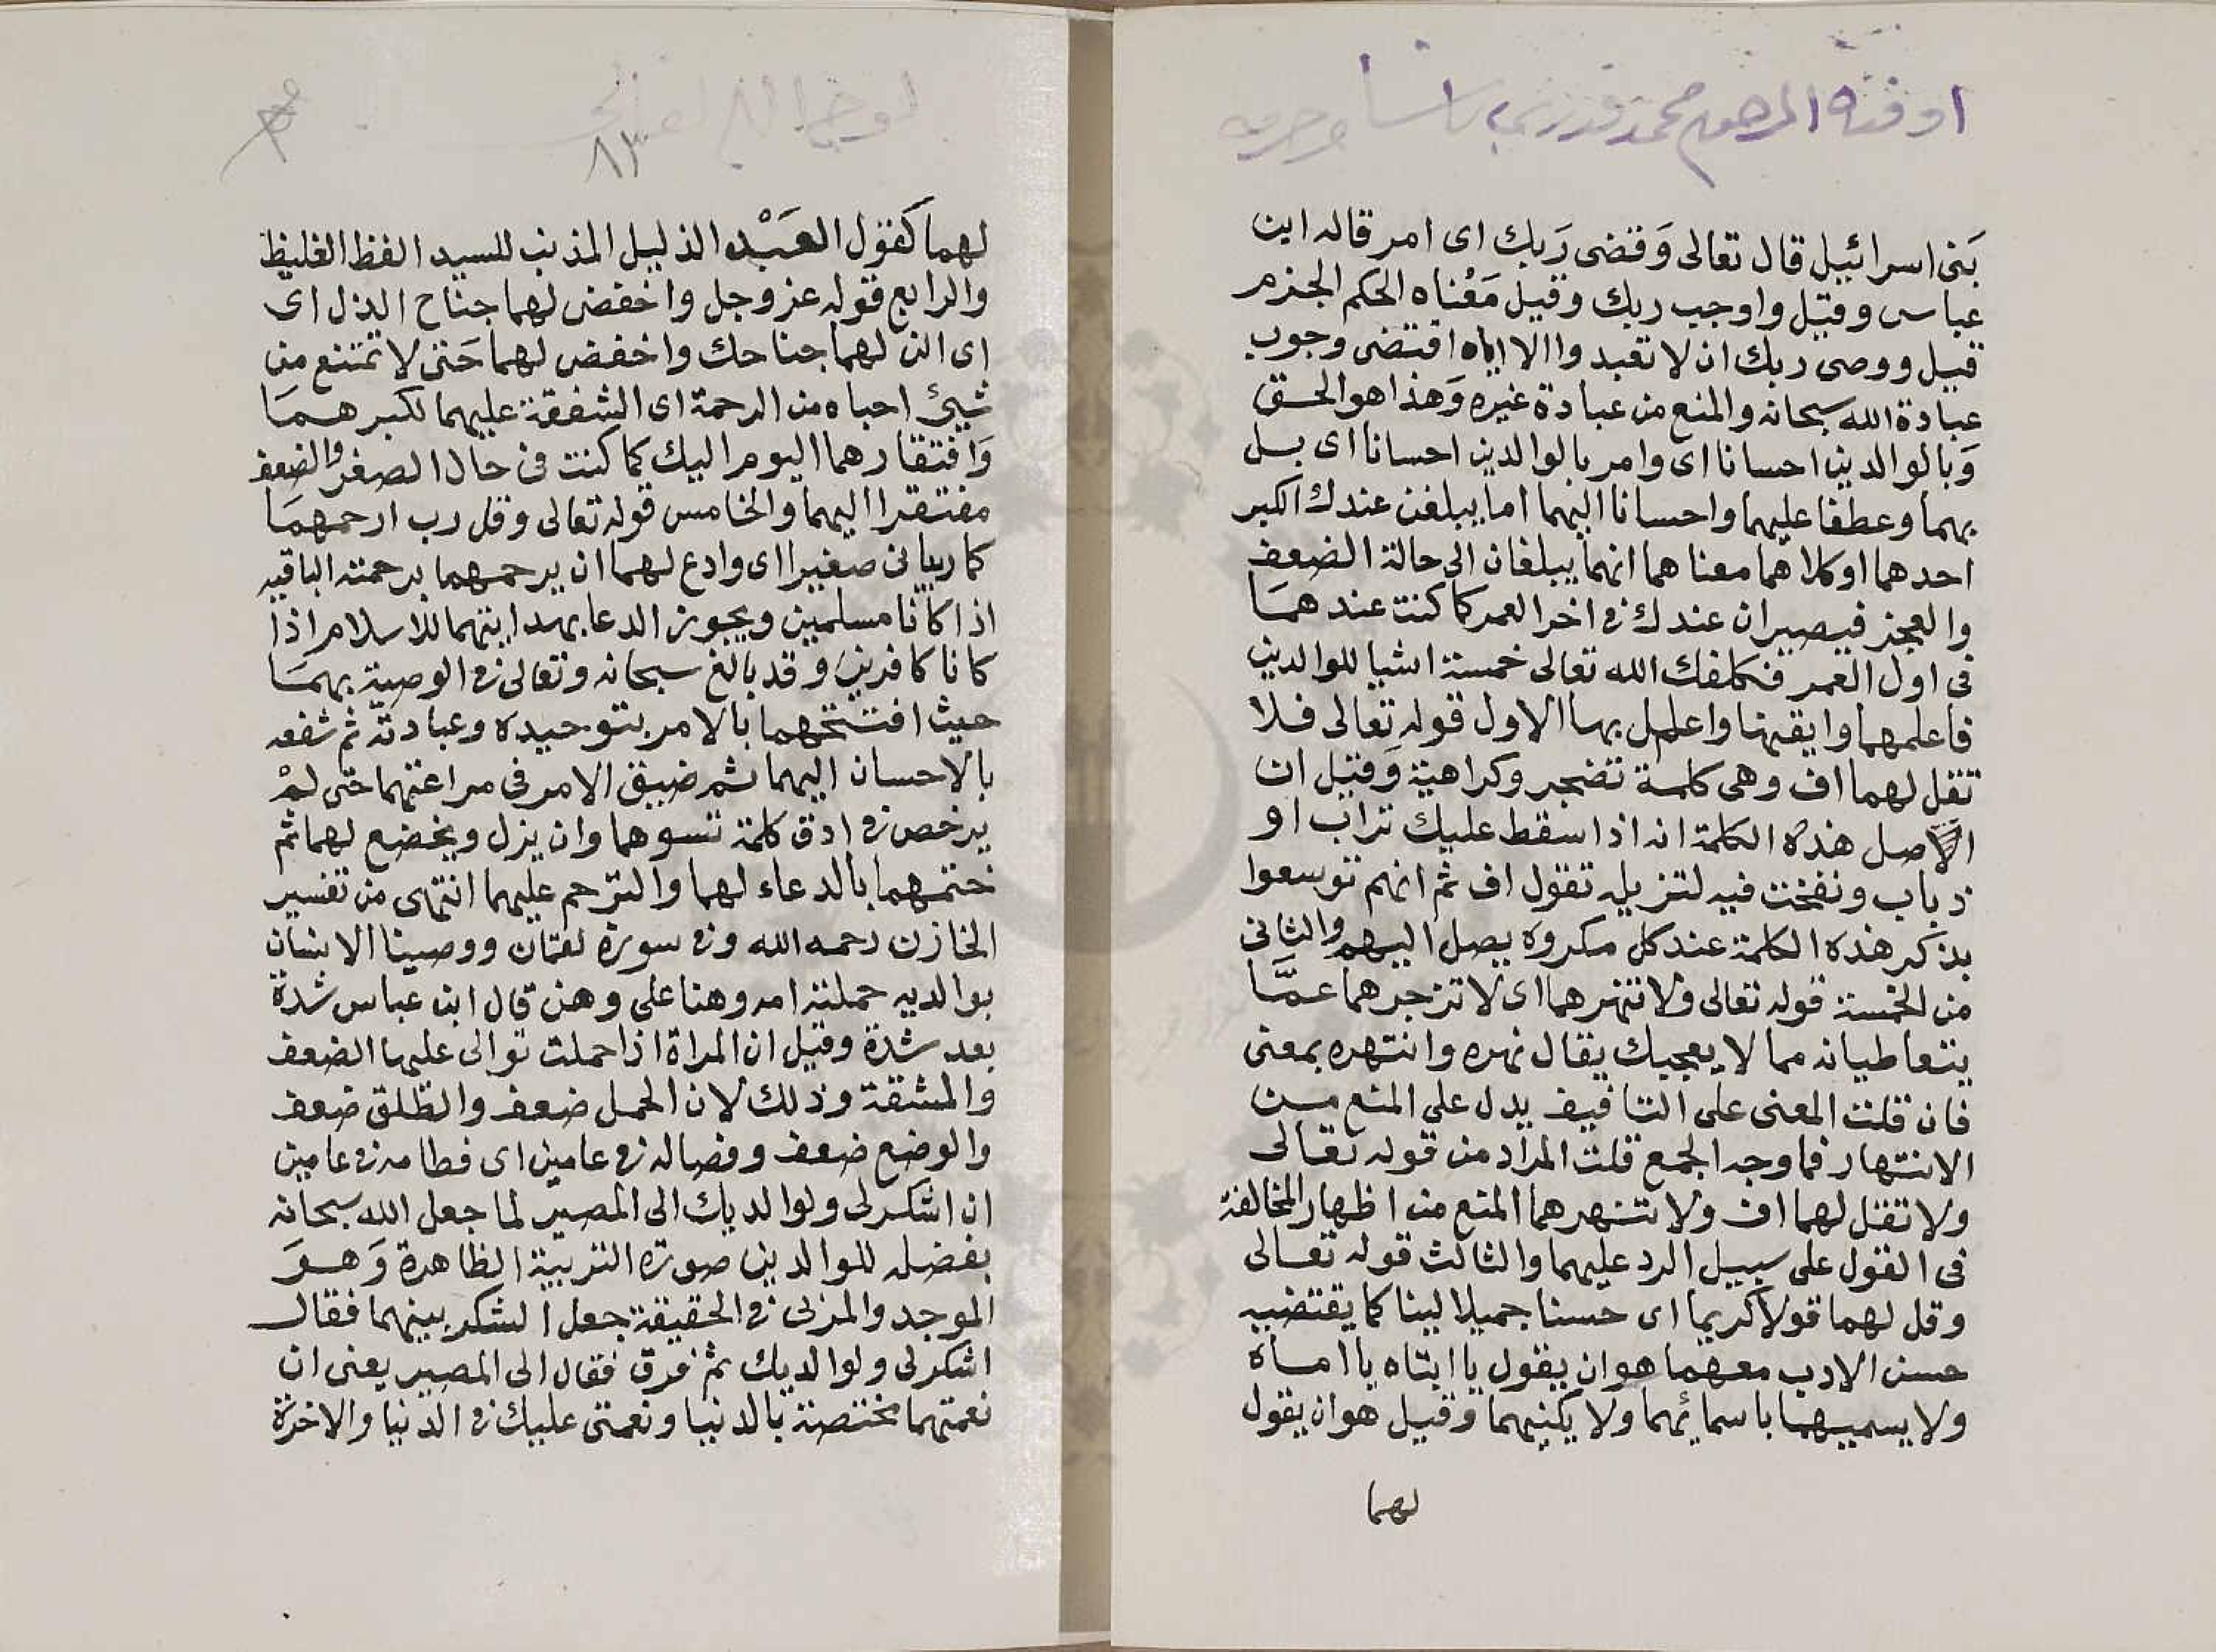 اوقفه المرحوم محمد قدري باشا وحرمه
بَنى اسرائيل قال تعالى وَقضى رَبك اى امر قاله ابن
عباس وقيل واوجب ربك وقيل مَعْناه الحكم الجزم
قيل ووصى ربك ان لا تعبدوا الا اياه اقتضى وجوب
عبادة الله سبحانه والمنع من عبادة غيره وَهذا هو الحق
وَبالوالدين احسانا اى وامر بالوالدين احسانا اى بـل
بهما وعطفا عليهما واحسانا اليهما اما يبلغن عندك الكبر
احدهما او كلاهما معناهما انهما يبلغان الى حالة الضعف
والعجز فيصيران عندك فى اخر العمر كما كنت عندهمَا
فى اول العمر فكلفك الله تعالى خمسة اشيا للوالدين
فاعلمهما وايقنها واعلمل بها الاول قوله تعالى فـلا
تقل لهما اف وهى كلمة تضجر وكراهية وَقيل ان
الاصل هذه الكلمة انه اذا سقط عليك تراب او
ذباب ونفخت فيه لتزيله تقول اف ثم انهم توسعوا
بذكر هذه الكلمة عند كل مكروه يصل اليهم والثانى
من الخمسة قوله تعالى ولا تنهرهما اى لا تزجرهما عـمَّا
يتعاطيانه مما لا يعجبك يقال نهره وانتهره بمعنى
فان قلت المعنى على التافيف يدل على المنع مـن
الانتهار فما وجه الجمع قلت المراد من قوله تعالى
ولا تقل لهما اف ولا تنهرهما المنع من اظهار المخالفة
فى القول على سبيل الرد عليهما والثالث قوله تعالى
وقل لهما قولا كريما اى حسنا جميلا لينا كما يقتضيه
حسن الادب معهما هو ان يقول يا ابتاه يا اماه
ولا يسميهما باسمائهما ولا يكنيهما وقيل هو ان يقول
لهما
٨٣
لهما كَقول العَبْد الذليل المذنب للسيد الفظ الغليظ
والرابع قوله عز وجل واخفض لهما جناح الذل اى
اى الن لهما جناحك واخفض لهما حَتى لا تمتنع من
شيئ احباه من الرحمة اى الشفقة عليهما لكبرهـمَا
وَافتقارهما اليوم اليك كما كنت فى حال الصغر والضعف
مفتقرا اليهما والخامس قوله تعالى وقل رب ارحمهمَا
كما ربيانى صغيرا اى وادع لهما ان يرحمهما برحمته الباقيه
اذا كانا مسلمين ويجوز الدعا بهدايتهما للاسلام اذا
كانا كافرين وقد بالغ سبحانه وتعالى فى الوصية بهمَا
حيث افتتحهما بالامر بتوحيده وعبادته ثم شفعه
بالاحسان اليهما ثم ضيق الامر فى مراعتهما حتى لمْ
يرخص فى ادق كلمة تسوهما وان يزل ويخضع لهما ثم
ختمهما بالدعاء لهما والترحم عليهما انتهى من تفسير
الخازن رحمه الله وفى سورة لقمان ووصينا الانسان
بوالديه حملته امه وهنا على وهن قال ابن عباس شدة
بعد شدة وقيل ان المراة اذا حملت توالى عليها الضعف
والمشقة وذلك لان الحمل ضعف والطلق ضعف
والوضع ضعف وفصاله فى عامين اى فطامه فى عامين
ان اشكر لى ولوالديك الى المصير لما جعل الله سبحانه
بفضله للوالدين صورة التربية الظاهرة وَهـوَ
الموجد والمربى فى الحقيقة جعل الشكر بينهما فقال
اشكر لى ولوالديك ثم فرق فقال الى المصير يعنى ان
نعمتهما مختصة بالدنيا ونعمتى عليك فى الدنيا والاخرة